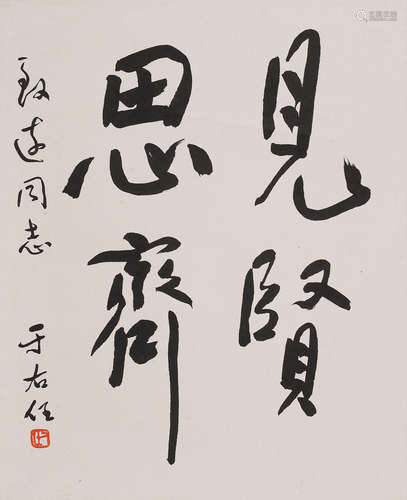 見賢
思齊
致遠同志
于右任